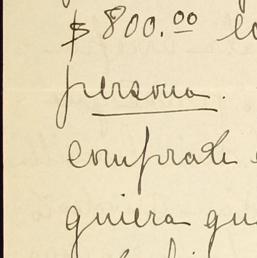 $ 800.00
persona.
comprate
quiera